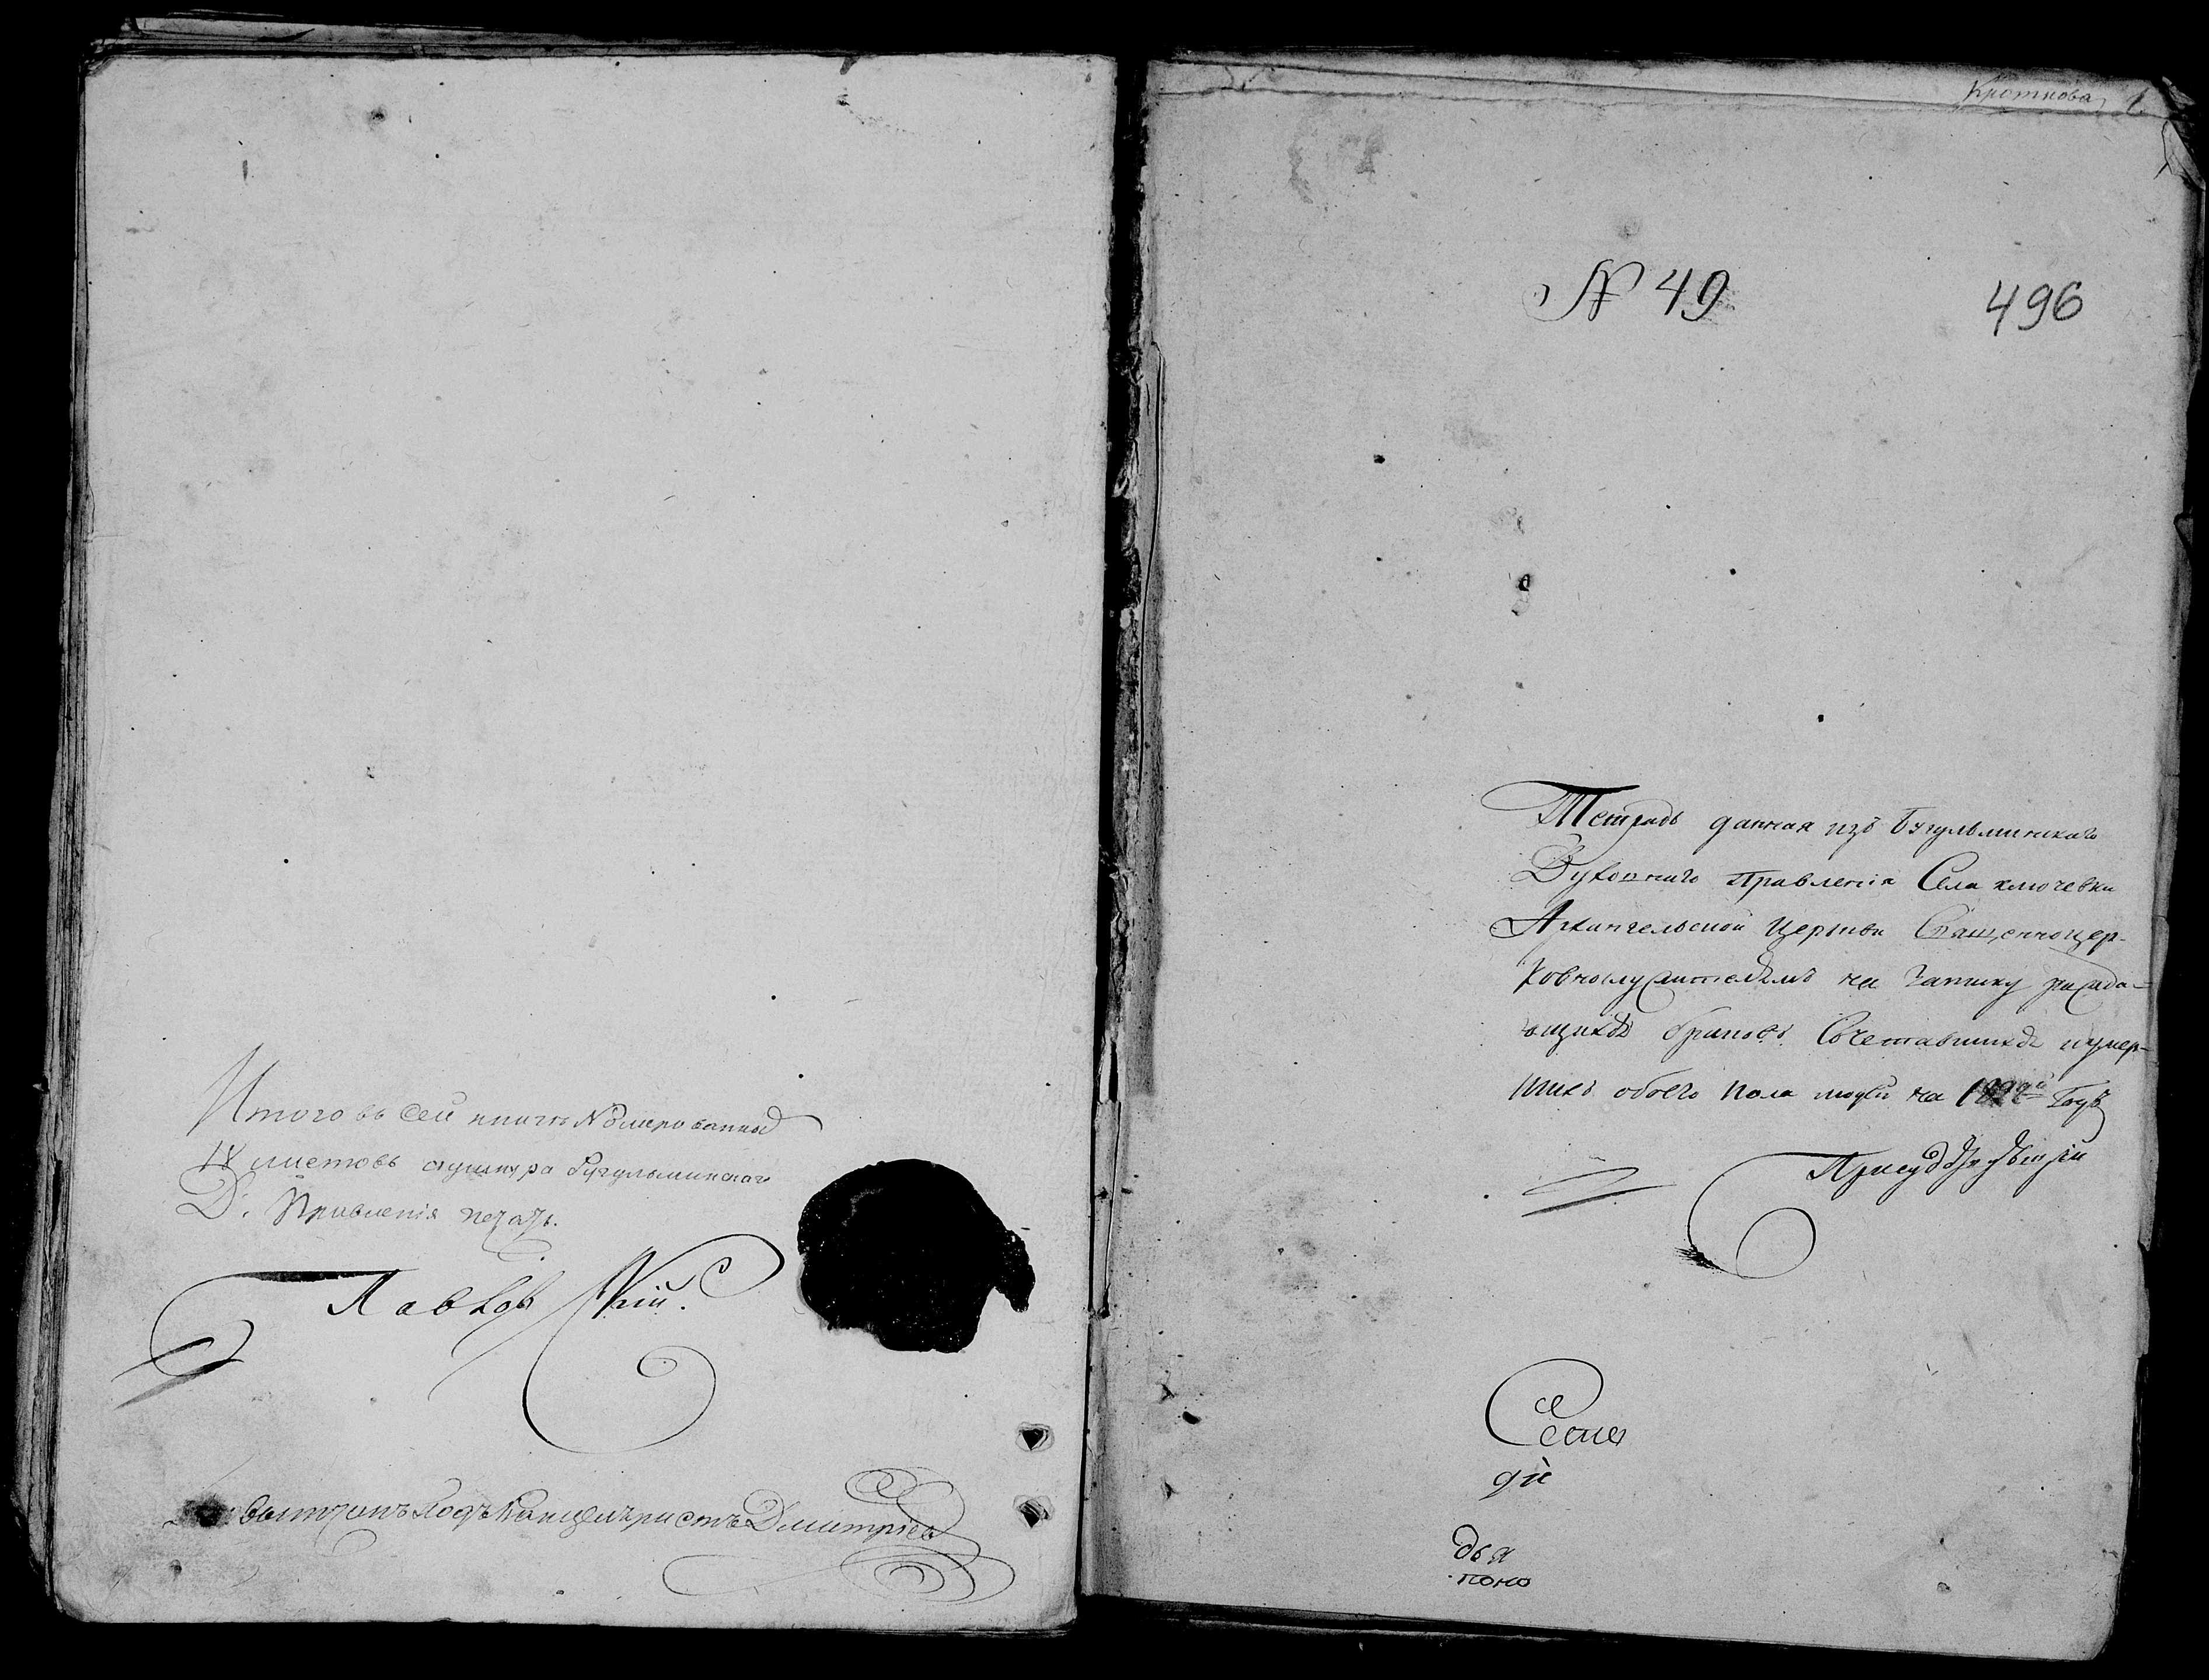 Итого въ сей книге Номерованныхъ
листовъ аушнура Бугульминскаго
Д. Правленія печать.
Павловскій.
Повытчикъ Подъканцеляристъ Дмитріевъ
Кроткова
№ 49
496
Тетрадь данная изъ Бугульминскаго
Духовнаго Правленія Села ключевки
Архангельской Церькви Священноцер-
ковнослужителямъ на записку раждаю-
ющихся браковъ Сочетавшихся иумер-
шихъ обоего пола людей на Годъ
Семе
дья
поно